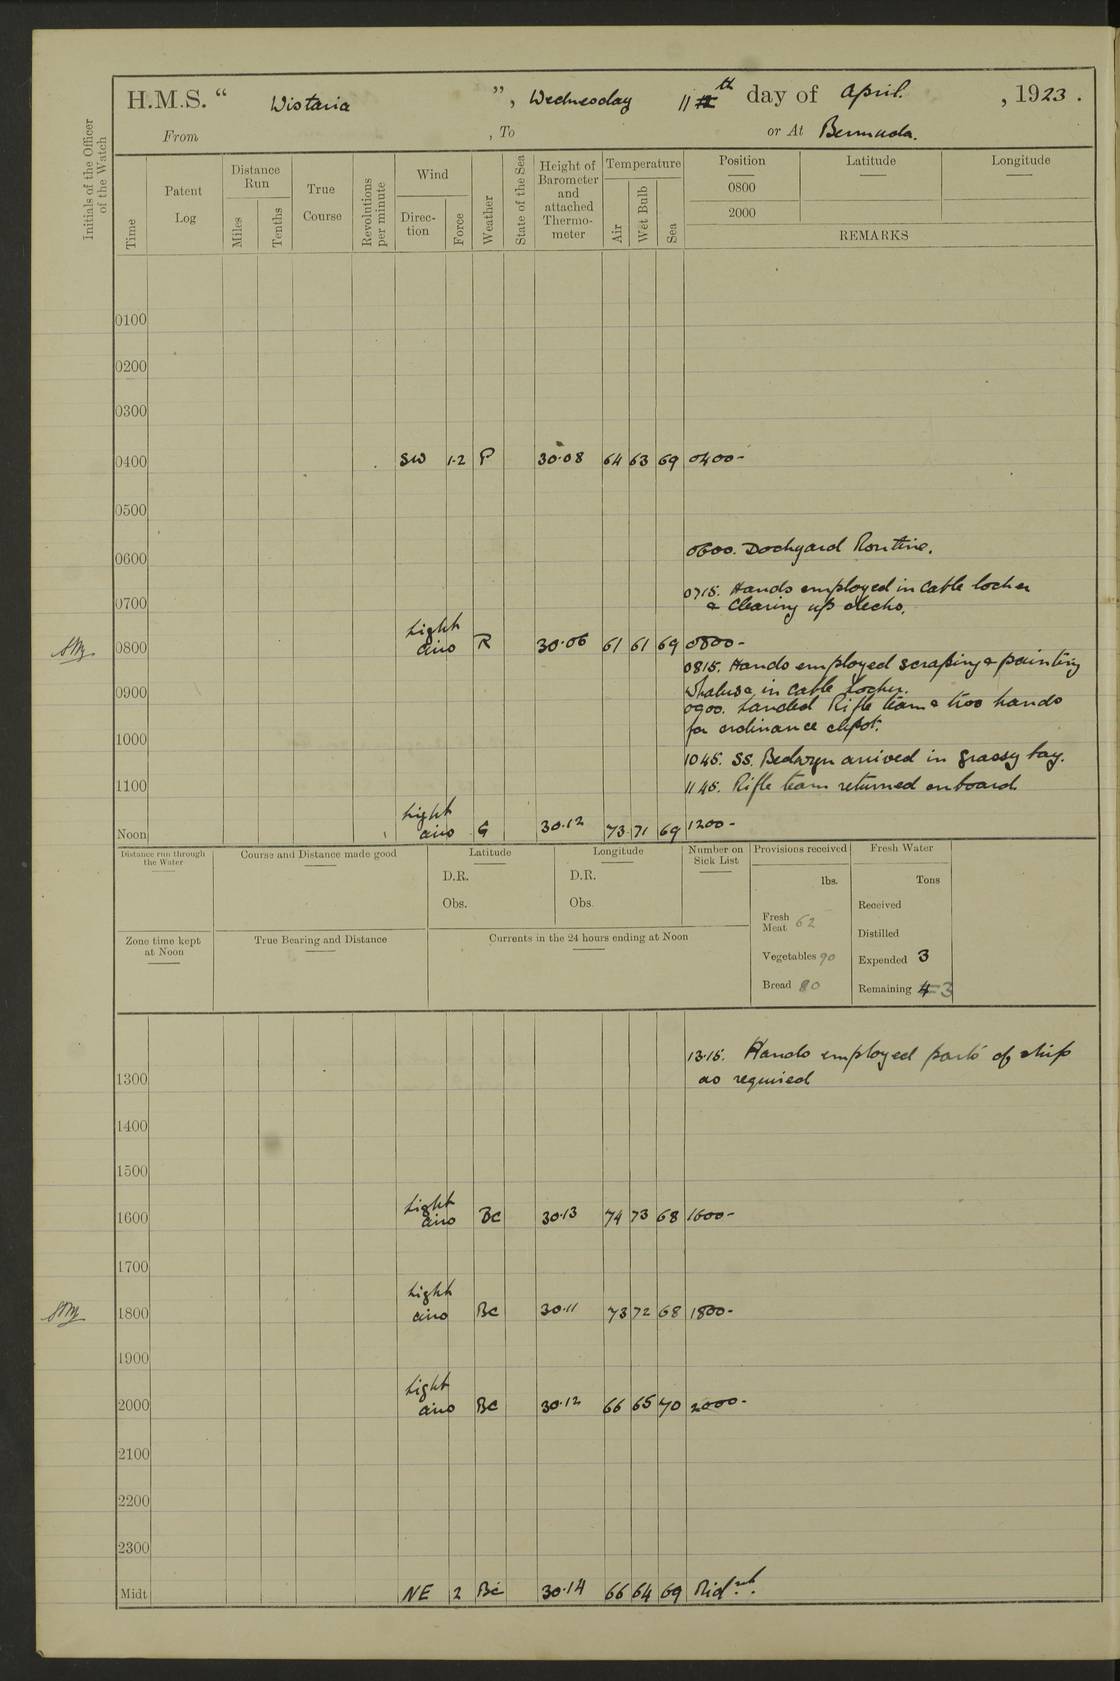 H.M.S. “ Wistaria ”, Wednesday 11th day of April. , 1923 .
From , To or At Bermuda.
Initials of the Officer of the Watch
Time
Patent Log
Distance Run
Miles
Tenths
True Course
Revolutions per minute
Wind
Direc-tion
Force
Weather
State of the Sea
Height of Barometer and attached Thermo-meter
Temperature
Air
Wet Bulb
Sea
Position
Latitude
Longitude
0800
2000
REMARKS
0100
0200
0300
0400 SW 1-2 P 30·08 64 63 69 0400-
0500
0600 0600. Dockyard Routine.
0715. Hands employed in Cable locker
0700 & Clearing up decks.
0800 Light airs R 30·06 61 61 69 0800-
0815. Hands employed scraping & painting
0900 in Cable Locker.
0900. Landed Rifle team & two hands
for ordinance depot.
1000
1045. SS. Bedwyn arrived in grassy bay.
1100 1145. Rifle team returned onboard.
Noon Light airs G 30·12 73 71 69 1200-
Distance run through the Water
Course and Distance made good
Latitude
D.R.
Obs.
Longitude
D.R.
Obs.
Number on Sick List
Provisions received
lbs.
Fresh Meat 62
Vegetables 90
Bread 80
Fresh Water
Tons
Received
Distilled
Expended 3
Remaining 43
Zone time kept at Noon
True Bearing and Distance
Currents in the 24 hours ending at Noon
1315. Hands employed parts of ship
1300 as required
1400
1500
1600 Light airs Bc 30·13 74 73 68 1600-
1700
1800 Light airs Bc 30·11 73 72 68 1800-
1900
2000 Light airs Bc 30·12 66 65 70 2000-
2100
2200
2300
Midt NE 2 Bc 30·14 66 64 69